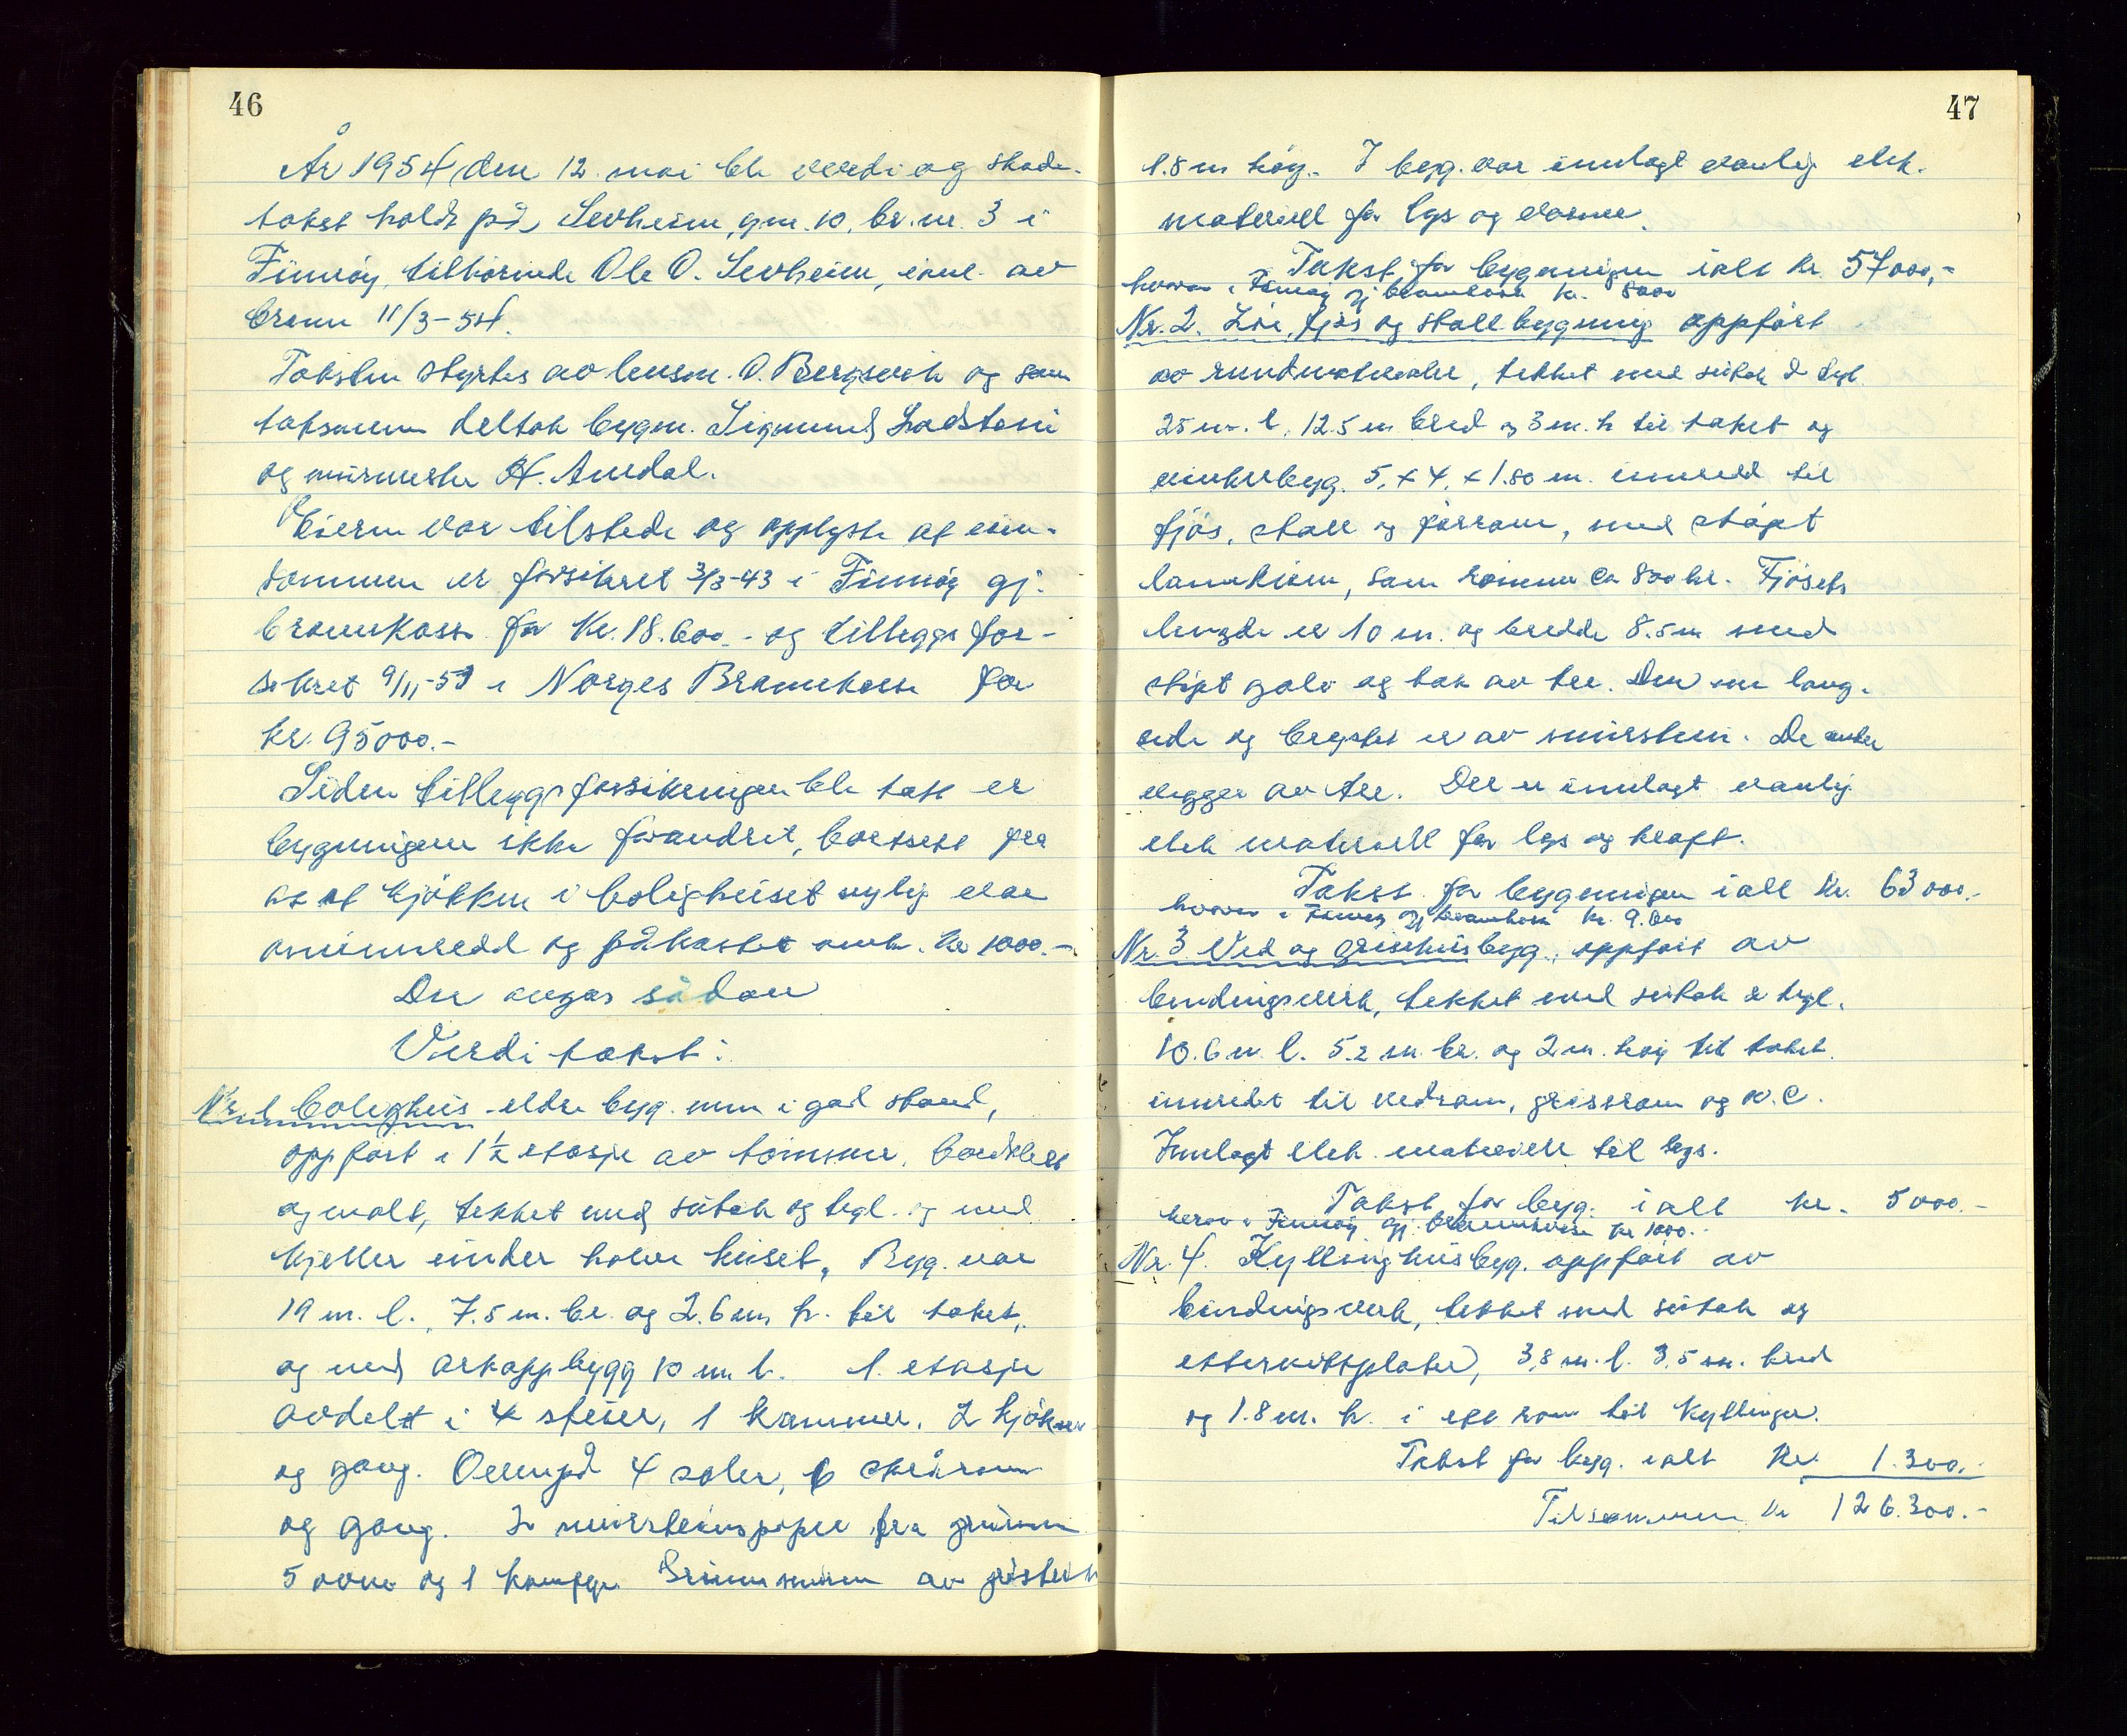 46
År 1954 den 12. mai ble verdi og skade-
takst holdt på Sevheim, g.nr. 10, br.nr. 3 i
Finnøy, tilhørende Ole O. Sevheim, i anl. av
brann 11/3-54.
Taksten styrtes av lensm. O. Bergsvik og som
taksmenn deltok bygm. Sigmund Ladstein
og murmester H. Amdal.
Eieren var tilstede og opplyste at eien-
dommen er forsikret 3/3-43 i Finnøy gj.
brannkasse for kr. 18.600.- og tilleggsfor-
sikret 9/11-53 i Norges Brannkasse for
kr. 95000.-
Siden tilleggsforsikringen ble tatt er
bygningene ikke forandret, bortsett fra
at et kjøkken i bolighuset nylig var
ominnredd og påkostet omkr. kr 1000.-
Der avgas sådan
Verditakst:
Nr. 1 bolighus - eldre byg. men i god stand,
oppført i 1½ etasje av tømmer, bordkledt
og malt, tekket med sutak og tegl. og med
kjeller under halve huset. Byg. var
19 m. l., 7.5 m. br. og 2.6 m h. til taket,
og med arkoppbygg 10 m l. 1. etasje
avdelt i 4 stuer, 1 kammer, 2 kjøkken
og gang. Ovenpå 4 saler, 6 skrårom
og gang. 2 mursteinspiper fra grunnen
5 ovner og 1 komfyr. Grunnmuren av gråstein
47
1.8 m høy. I byg. var innlagt vanlig elek.
materiell for lys og varme.
Takst for bygningen ialt kr. 57000,-
hvorav i Finnøy gj brannkasse kr. 8000
Nr. 2. Løe, fjøs og stallbygning oppført
av rundmaterialer, tekket med sutak & tegl.
25 m. l, 12.5 m bred og 3 m. h til taket og
vinkelbyg. 5, x 4, x 1.80 m. innredd til
fjøs, stall og fórrom, med støpt
landkum, som rommer ca 800 hl. Fjøsets
lengde er 10 m. og bredde 8.5 m med
støpt golv og tak av tre. Den ene lang-
side og brystet er av murstein. De andre
vegger av tre. Der er innlagt vanlig
elek materiell for lys og kraft.
Takst for bygningen ialt kr. 63000.-
hvorav i Finnøy gj brannkasse kr. 9.000
Nr. 3 Ved og grisehusbygg., oppført av
bindingsverk, tekket med sutak & tegl.
10.6 m l. 5.2 m. br. og 2 m. høy til taket.
innredet til vedrom, griserom og W.C.
Innlagt elek. materiell til lys.
Takst for byg. ialt kr. 5000.-
herav i Finnøy gj. brannkasse kr 1000.-
Nr. 4. Kyllinghusbyg. oppført av
bindingsverk, tekket med sutak og
etternittplater, 3,8 m. l. 3,5 m. bred
og 1.8 m. h. i ett rom til kyllinger.
Takst for byg. ialt Kr. 1.300.-
Tilsammen kr 126.300.-